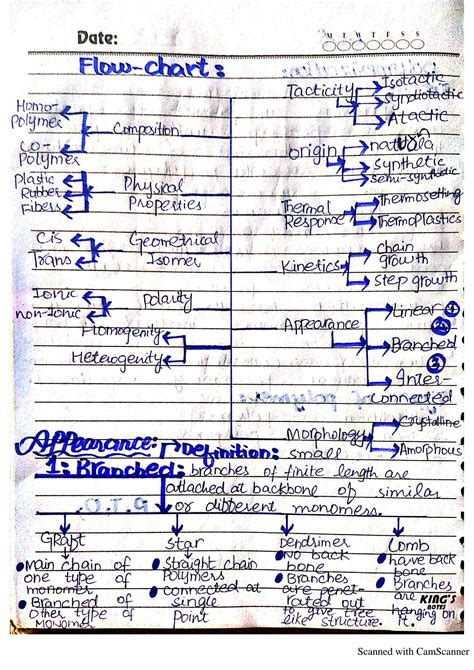 Date:
M T W T F S S
Flow-chart:
Tacticity
Isotactic
Syndiotactic
Atactic
Homo-
Polymer
Composition
CO-
Polymer
origin
synthetic
semi-synthetic
Plastic
Rubber
Fibers
Physical
Properties
Thermal
Response
Thermosetting
ThermoPlastics
Cis
Trans
Geometrical
Isomer
Kinetics
chain
growth
step growth
Ionic
non-Ionic
Polarity
Homogenity
Heterogenity
Appearance
Linear 1
2
Branched
3
Inter-
connected
Morphology
Crystalline
Amorphous
Appearance:
Definition: small
1: Branched: branches of finite length are
attached at backbone of similar
or different monomers.
Graft
Star
Dendrimer
Comb
Main chain of
one type of
monomer
Branched of
other type of
monomer
Straight chain
Polymers
connected at
single
point
No back
bone
Branches
are penet-
rated out
to give tree
like structure.
have back
bone
Branches
are
hanging on
it.
KING'S
NOTES
Scanned with CamScanner